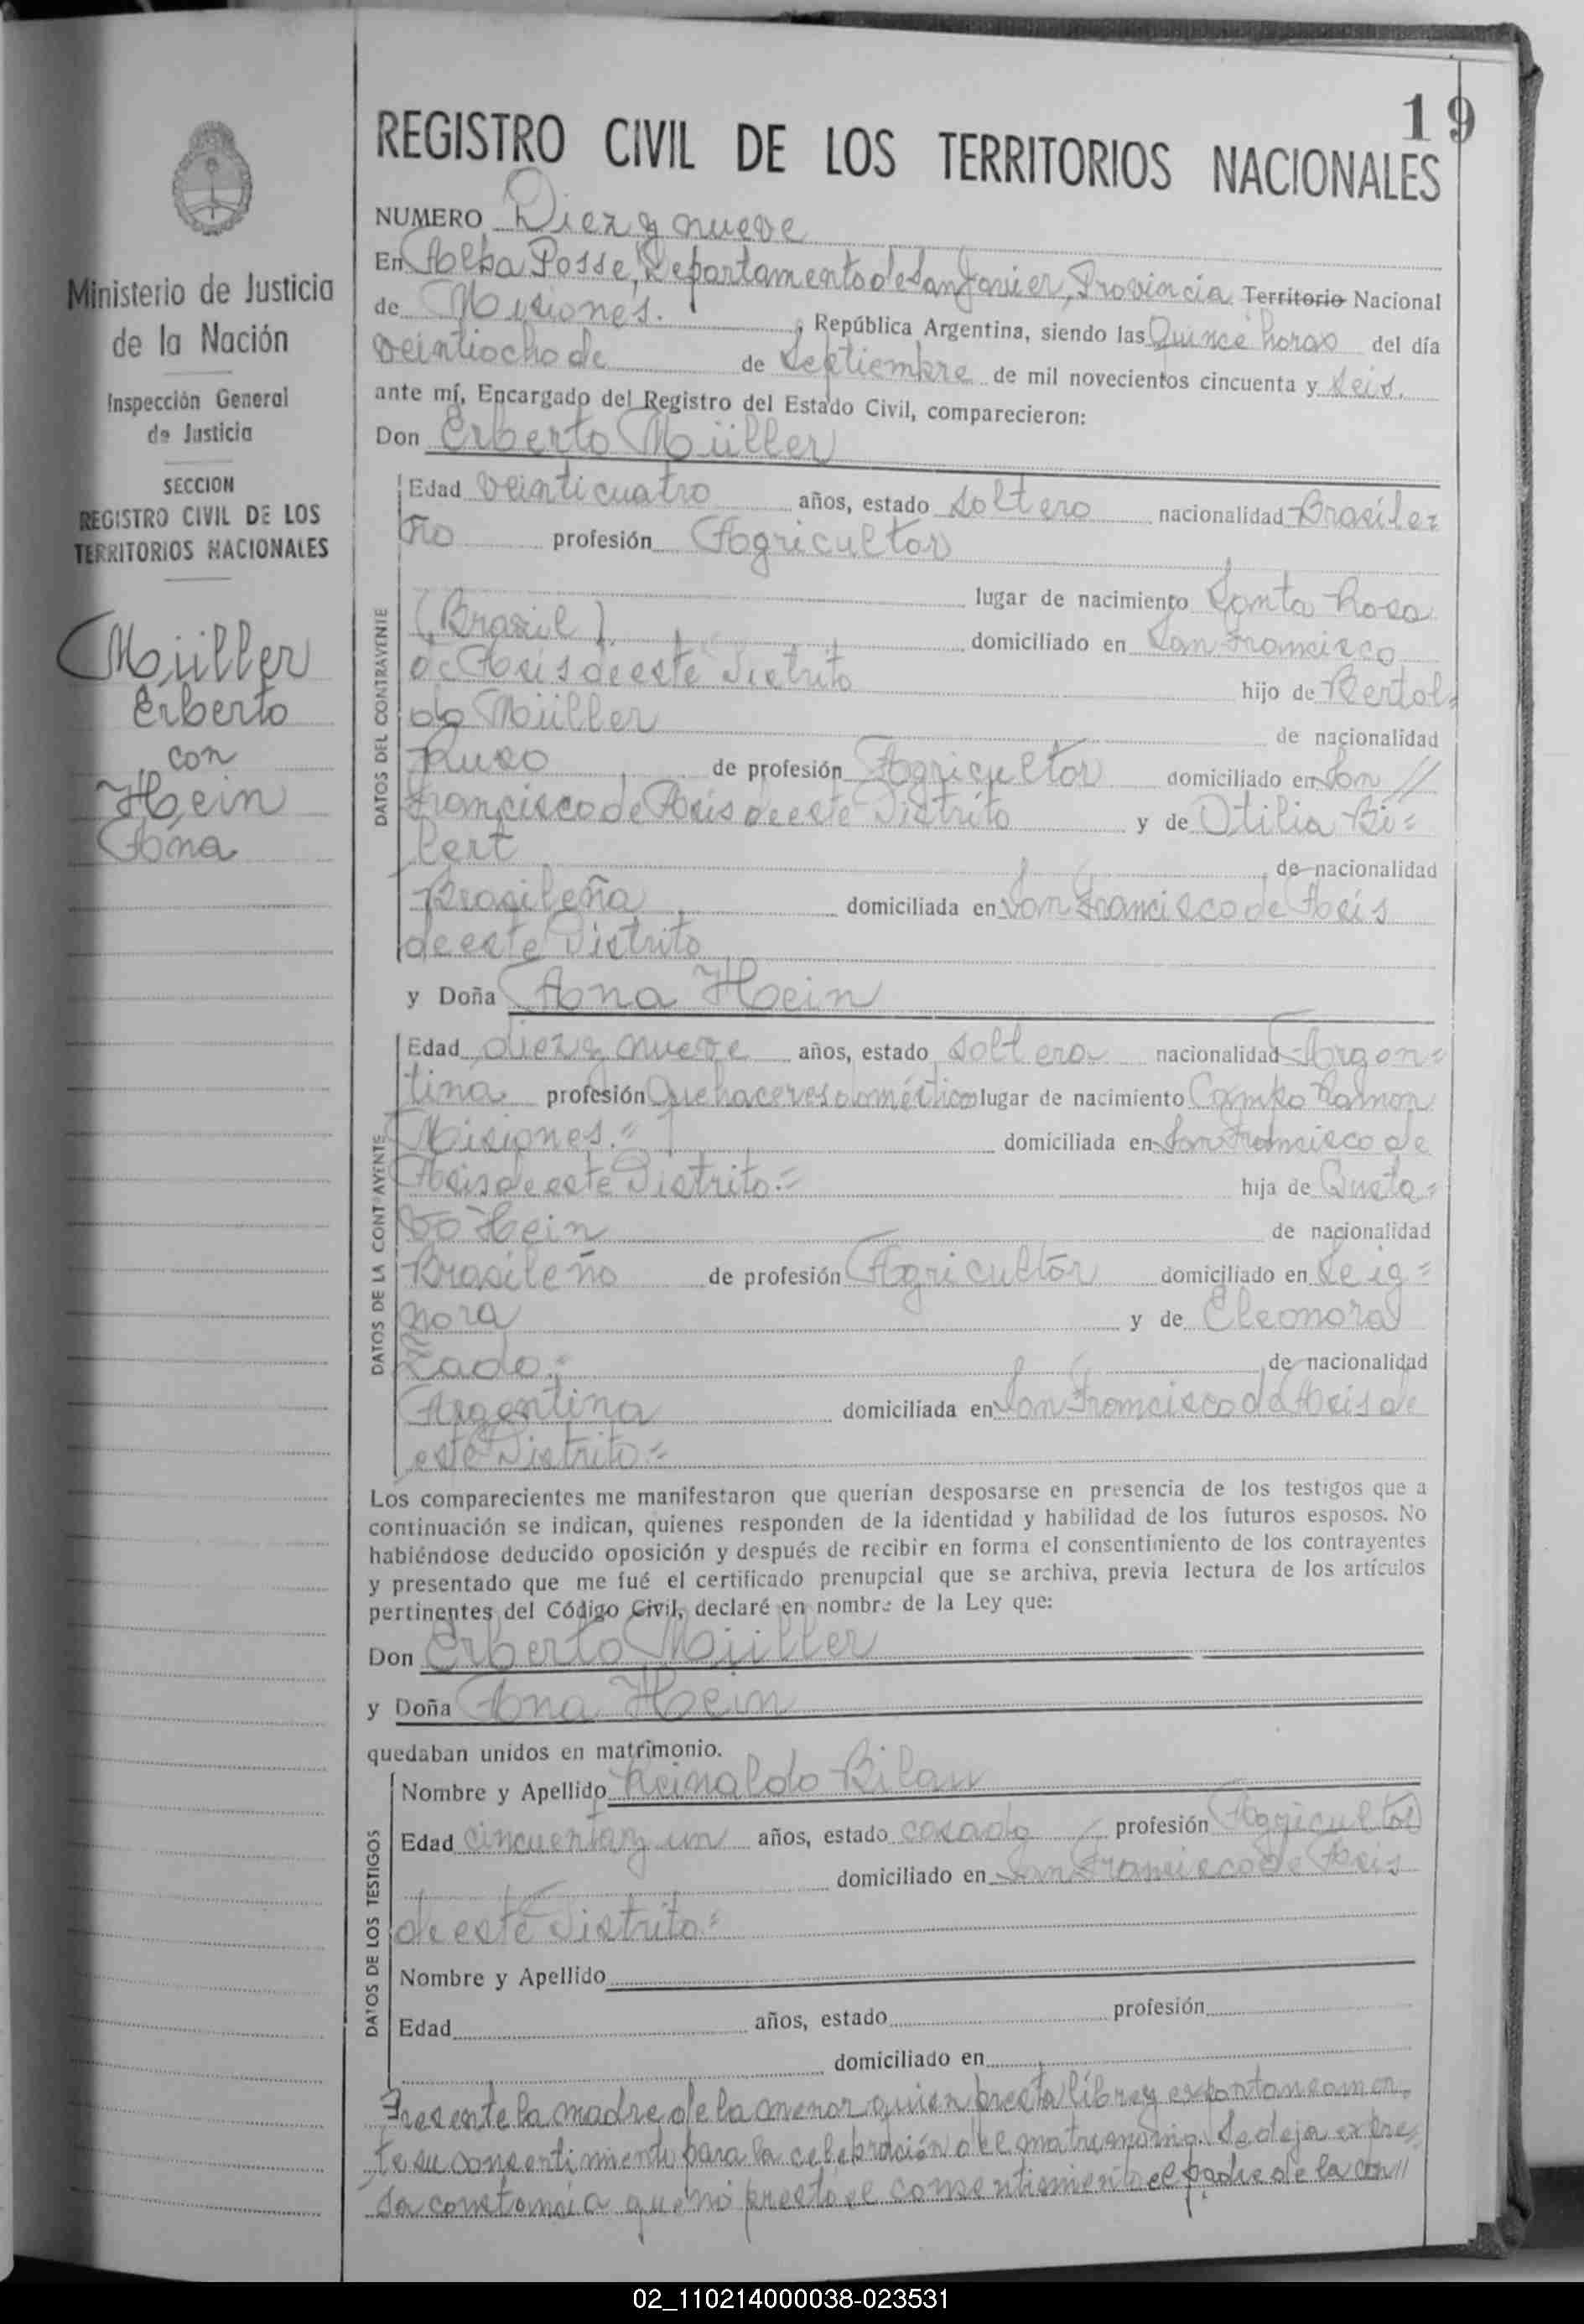 19
REGISTRO CIVIL DE LOS TERRITORIOS NACIONALES
Ministerio de Justicia
de la Nación
Inspección General
de Justicia
SECCION
REGISTRO CIVIL DE LOS
TERRITORIOS NACIONALES
Müller
Erberto
con
Hein
Ana
NUMERO Diez y nueve
En Alba Posse, Departamento de San Javier, Provincia Territorio Nacional
de Misiones. , República Argentina, siendo las Quince horas del día
veintiocho de de Septiembre de mil novecientos cincuenta y seis.
ante mí, Encargado del Registro del Estado Civil, comparecieron:
Don Erberto Müller
DATOS DEL CONTRAYENTE
Edad veinticuatro años, estado soltero nacionalidad Brasile=
ño profesión Agricultor
lugar de nacimiento Santa Rosa
(Brasil) domiciliado en San Francisco
de Asis de este Distrito hijo de Bertol=
do Müller de nacionalidad
Ruso de profesión Agricultor domiciliado en San //
Francisco de Asis de este Distrito y de Otilia Bi=
bert de nacionalidad
Brasileña domiciliada en San Francisco de Asis
de este Distrito
y Doña Ana Hein
DATOS DE LA CONTRAYENTE
Edad diez y nueve años, estado soltera nacionalidad Argen=
tina profesión Quehaceres domésticos lugar de nacimiento Campo Ramon
Misiones.= domiciliada en San Francisco de
Asis de este Distrito.= hija de Gusta=
vo Hein de nacionalidad
Brasileño de profesión Agricultor domiciliado en Se ig=
nora y de Eleonora
de nacionalidad
Argentina domiciliada en San Francisco de Asis de
este Distrito.=
Los comparecientes me manifestaron que querían desposarse en presencia de los testigos que a
continuación se indican, quienes responden de la identidad y habilidad de los futuros esposos. No
habiéndose deducido oposición y después de recibir en forma el consentimiento de los contrayentes
y presentado que me fué el certificado prenupcial que se archiva, previa lectura de los artículos
pertinentes del Código Civil, declaré en nombre de la Ley que:
Don Erberto Müller
y Doña Ana Hein
quedaban unidos en matrimonio.
DATOS DE LOS TESTIGOS
Nombre y Apellido Reinaldo Bilau
Edad cincuenta y un años, estado casado profesión Agricultor
domiciliado en San Francisco de Asis
de este Distrito.=
Nombre y Apellido
Edad años, estado profesión
domiciliado en
Presente la madre de la menor quien presta libre y expontaneamen=
te su consentimiento para la celebración del matrimonio. Se deja expre=
sa constancia que no prestó el consentimiento el padre de la con//
02_110214000038-023531